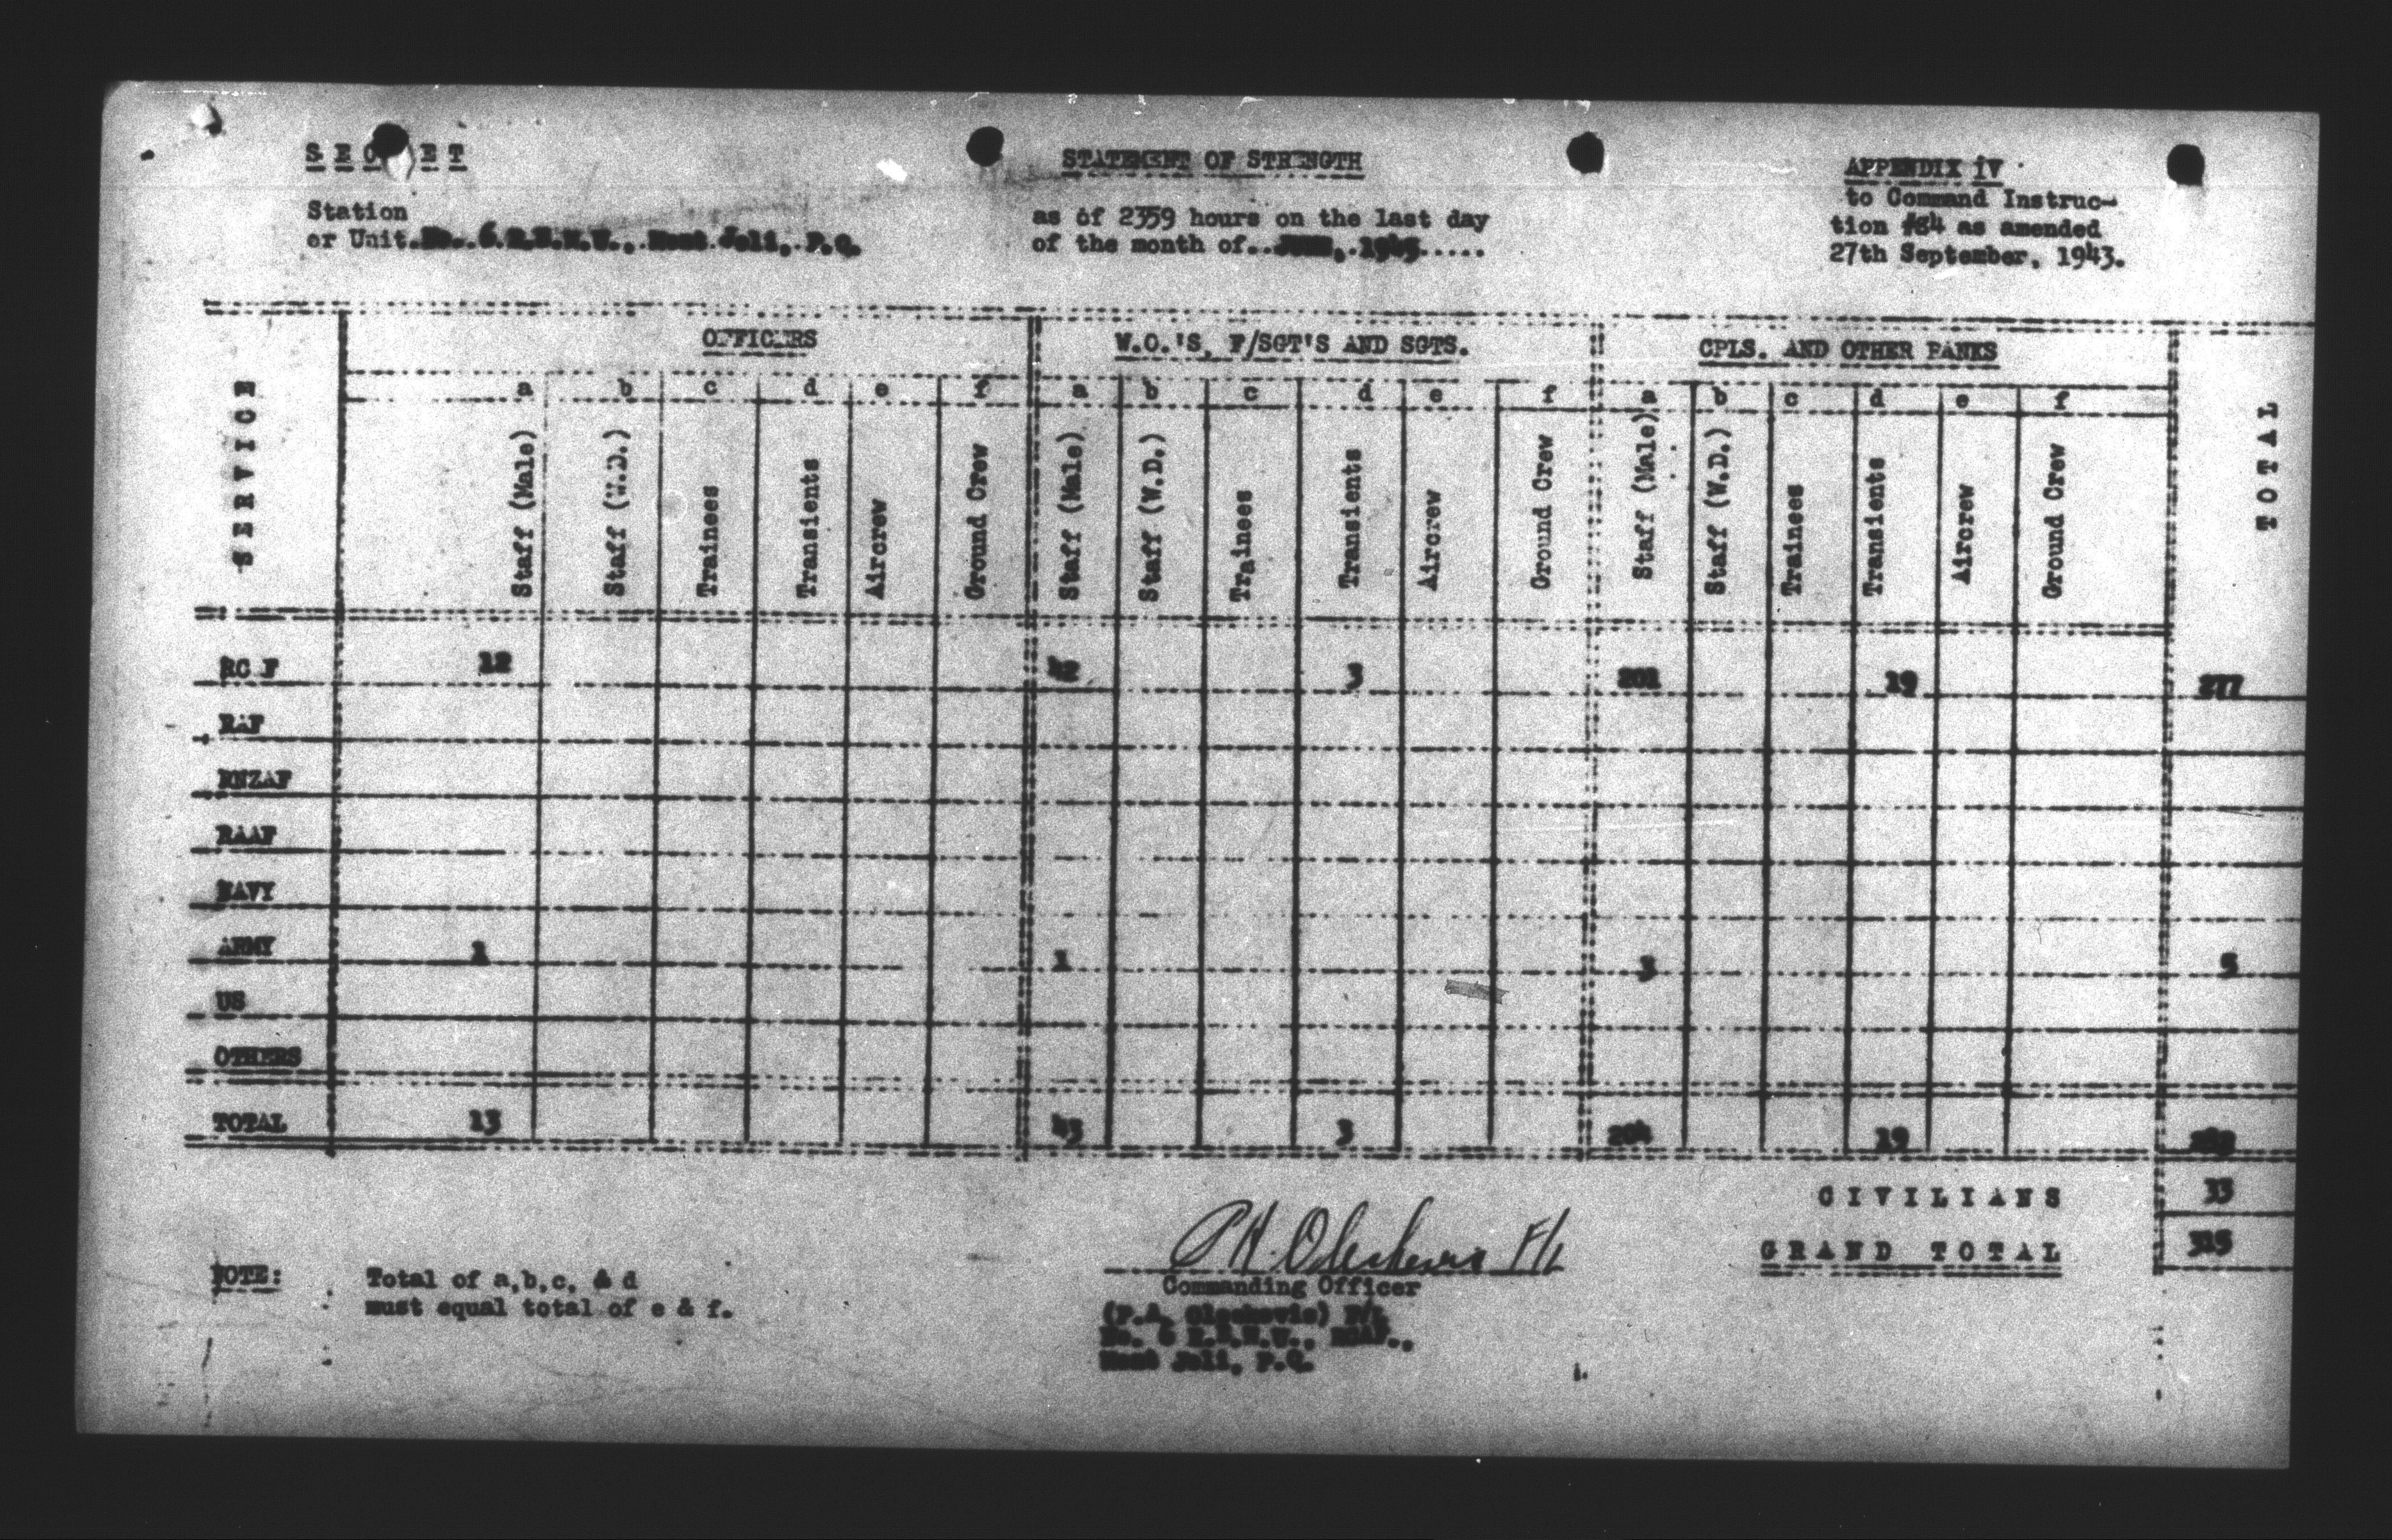 SECRET
STATEMENT OF STRENGTH
APPENDIX iV
to Command Instruc-
tion #84 as amended
27th September, 1943.
Station
or Unit.No. 6 R.E.M.U., Mont Joli, P.Q.
as of 2359 hours on the last day
of the month of..JUNE, 1945.....
SERVICE
OFFICERS
W.O.'S, F/SGT'S AND SGTS.
CPLS. AND OTHER RANKS
TOTAL
a b c d e f a b c d e f a b c d e f
Staff (Male) Staff (W.D.) Trainees Transients Aircrew Ground Crew Staff (Male) Staff (W.D.) Trainees Transients Aircrew Ground Crew Staff (Male) Staff (W.D.) Trainees Transients Aircrew Ground Crew
RC F 12 42 3 201 19 277
RAF
RNZAF
RAAF
NAVY
ARMY 1 1 3 5
US
OTHERS
TOTAL 13 43 3 204 19 282
CIVILIANS 33
GRAND TOTAL 315
NOTE: Total of a,b,c, & d
must equal total of e & f.
Commanding Officer
(P.A. ) F/L
No. 6 R.E.M.U., RCAF.,
Mont Joli, P.Q.